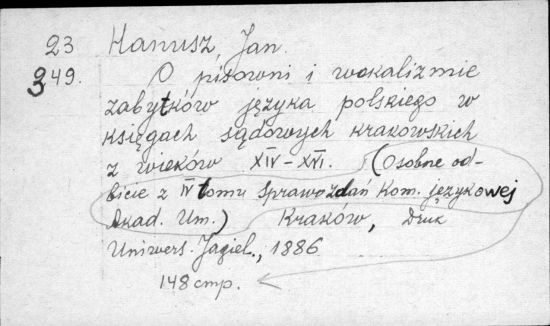 23 Hanusz, Jan.
349. O pisowni i wokalizmie
zabytków języka polskiego w
księgach sądowych krakowskich
z wieków XIV-XVI. (Osobne od-
bicie z IV tomu Sprawozdań Kom. językowej
Akad. Um.) Kraków, Druk
Uniwers. Jagiel., 1886
148 cmp.